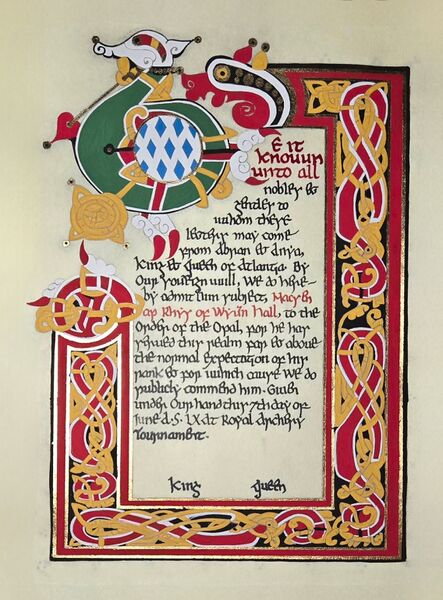 Be it
known
unto all
nobles &
gentles to
whom these
letters may come
from & anya,
King & Queen of Atlantia. By
Our will, we do here-
by admit our subject,
ap Rhys of Hall, to the
Order of the Opal, for he has
served this realm far & above
the normal expectation of his
rank & for which cause We do
publicly commend him. Given
under Our hand this 7th day of
June A.S. LX at Royal Archery
Tournament.
King Queen